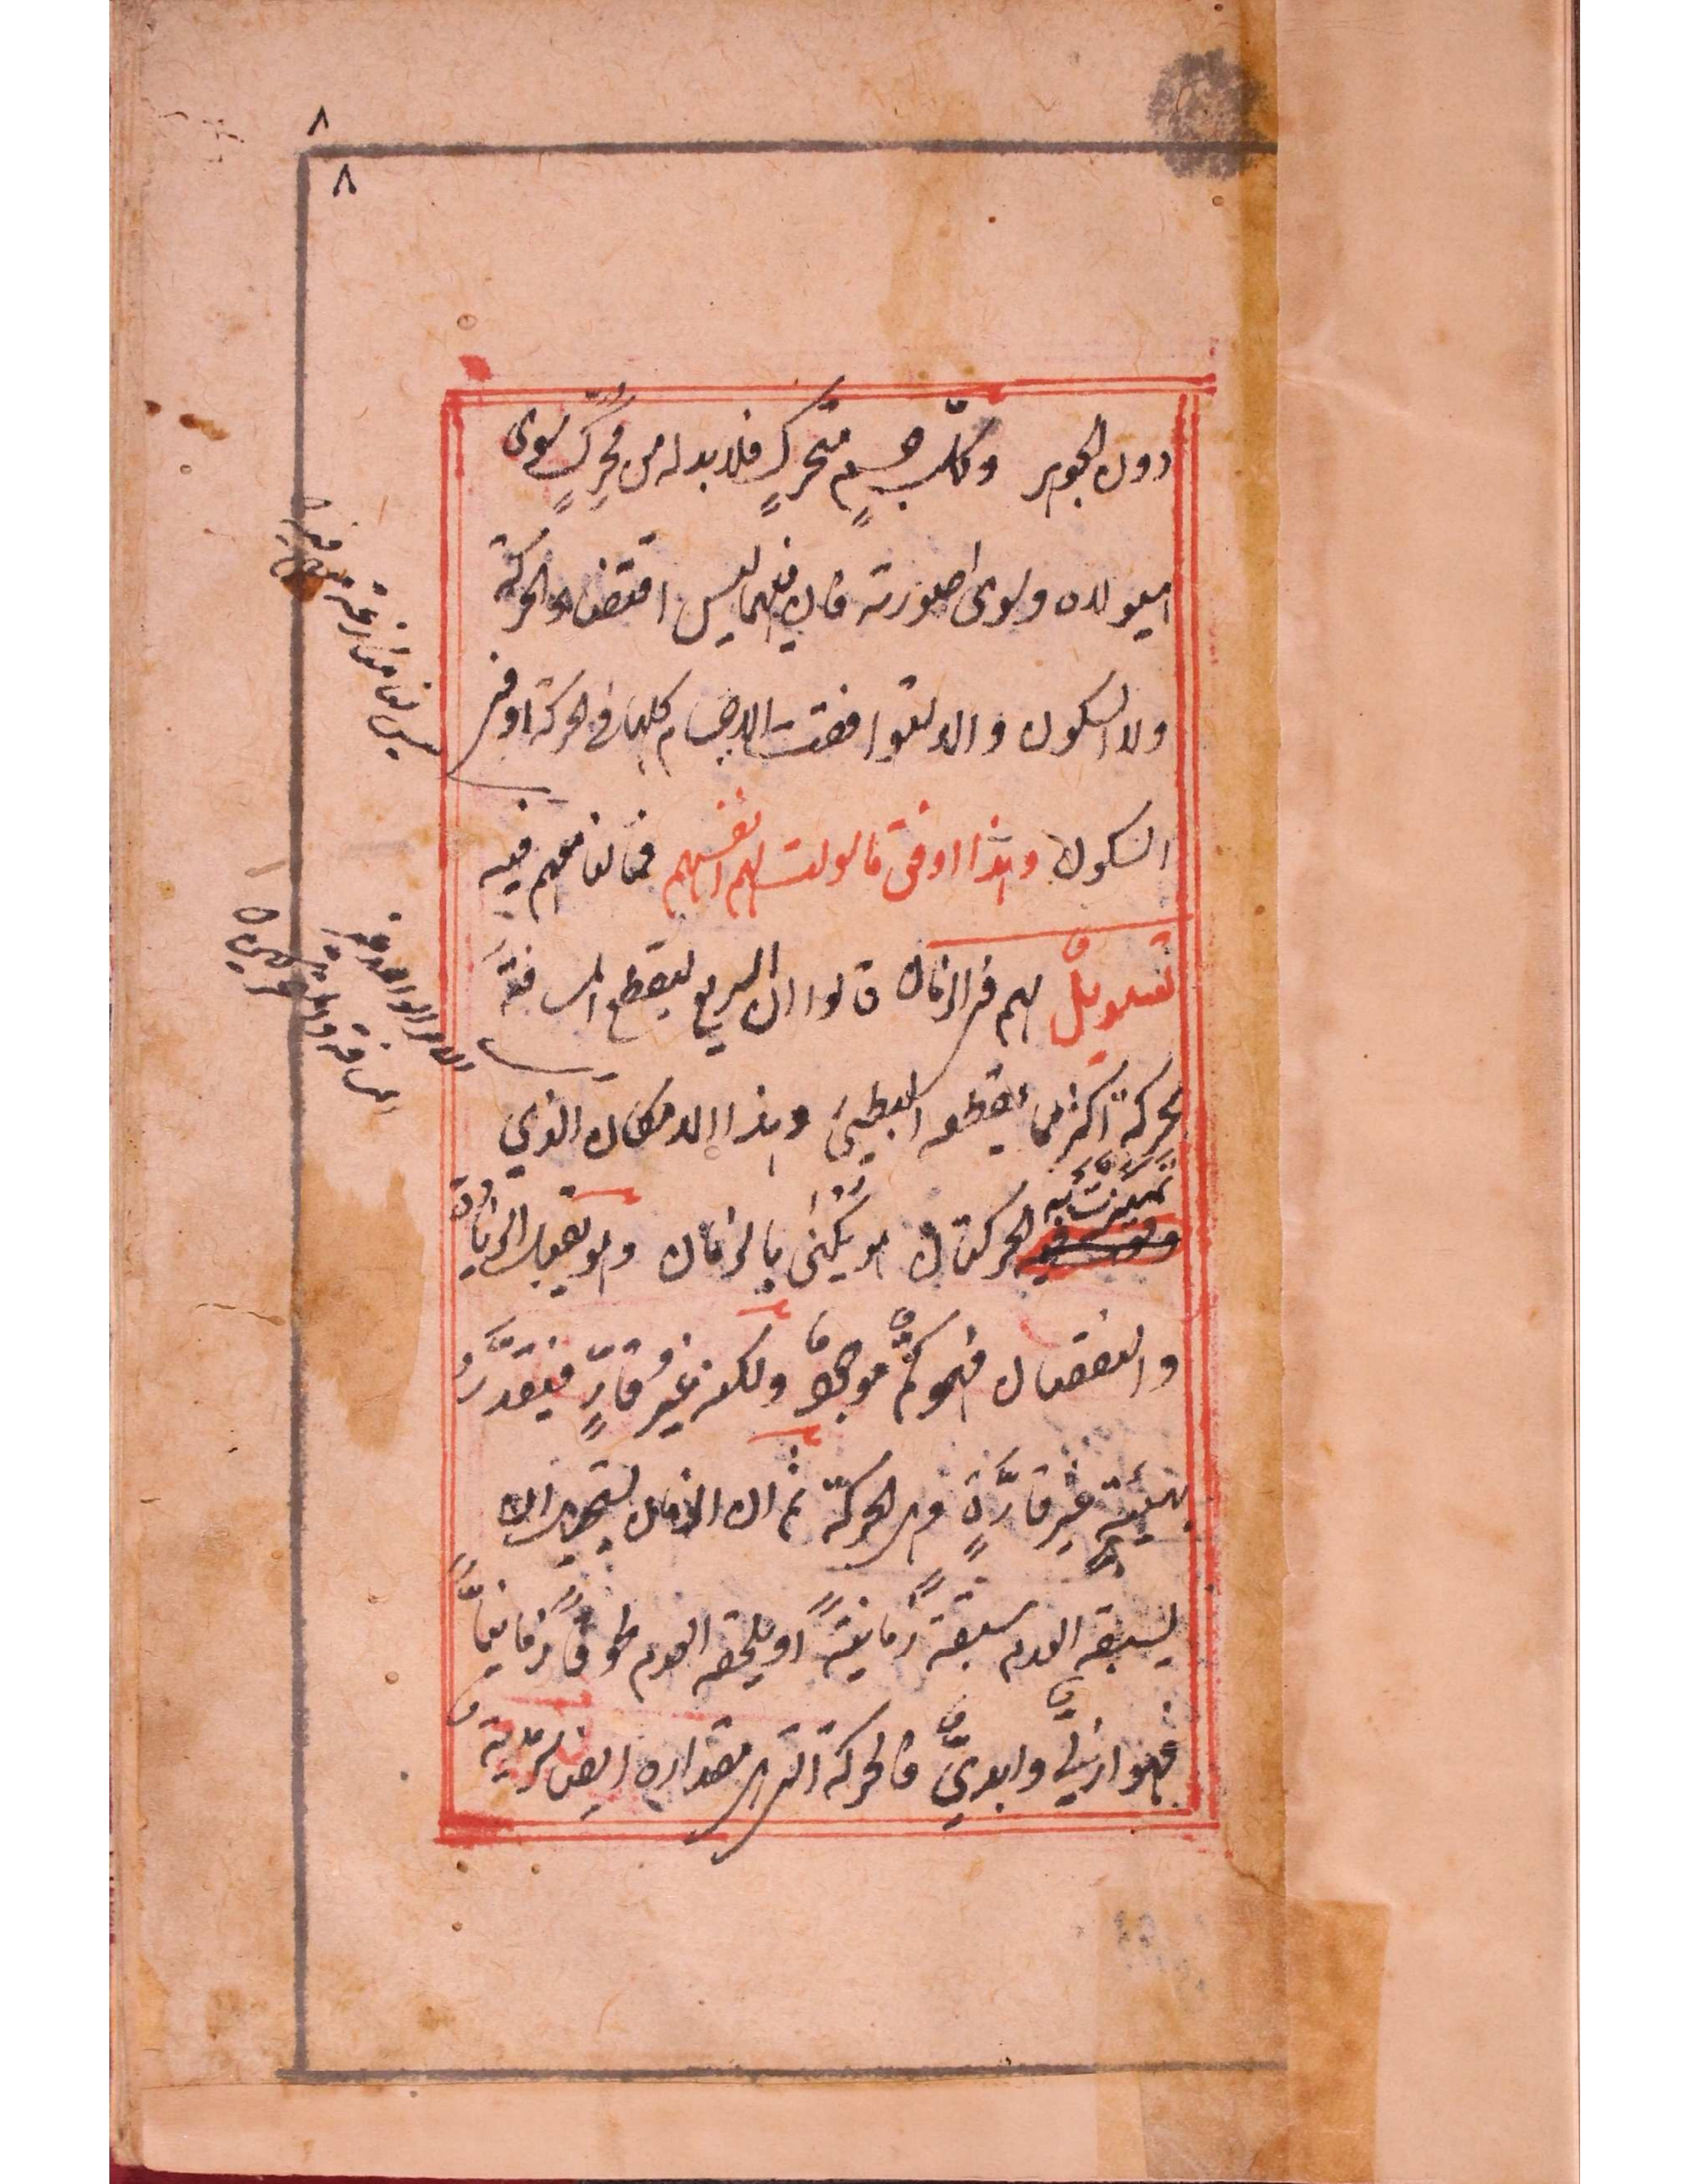 ٨
٨
دون الجوهر وكلّ جسمٍ متحركٍ فلا بد له من محرّكٍ سوى
هيولاه وسوى صورته فان فيهما ليس اقتضاء الحركة
ولا السكون والا لتوافقت الاجسام كلها في الحركة او في
السكون وهذا اوفى ما سولت لهم انفسهم فخالفا معهم فيه
تسويلٌ لهم في الزمان قالوا ان السريع ليقطع المسافة
بحركةٍ اكثر مما يقطعه البطيئ وهذا الامكان الذي
تميزت به الحركتان هو يكنى بالزمان وهو يقبل الزيادة
والنقصان فهو كمٌّ موجودٌ ولكنه غير قارٍّ فيقدَّر
بهيئةٍ غير قارَّةٍ وهي الحركة ثم ان الزمان يستحيل ان
يسبقه العدم سبقةً زمانيةً او يلحقه العدم لحوقاً زمانياً
فهو ازليٌّ وابديٌّ فالحركة التي هي مقداره ايضاً سرمدية